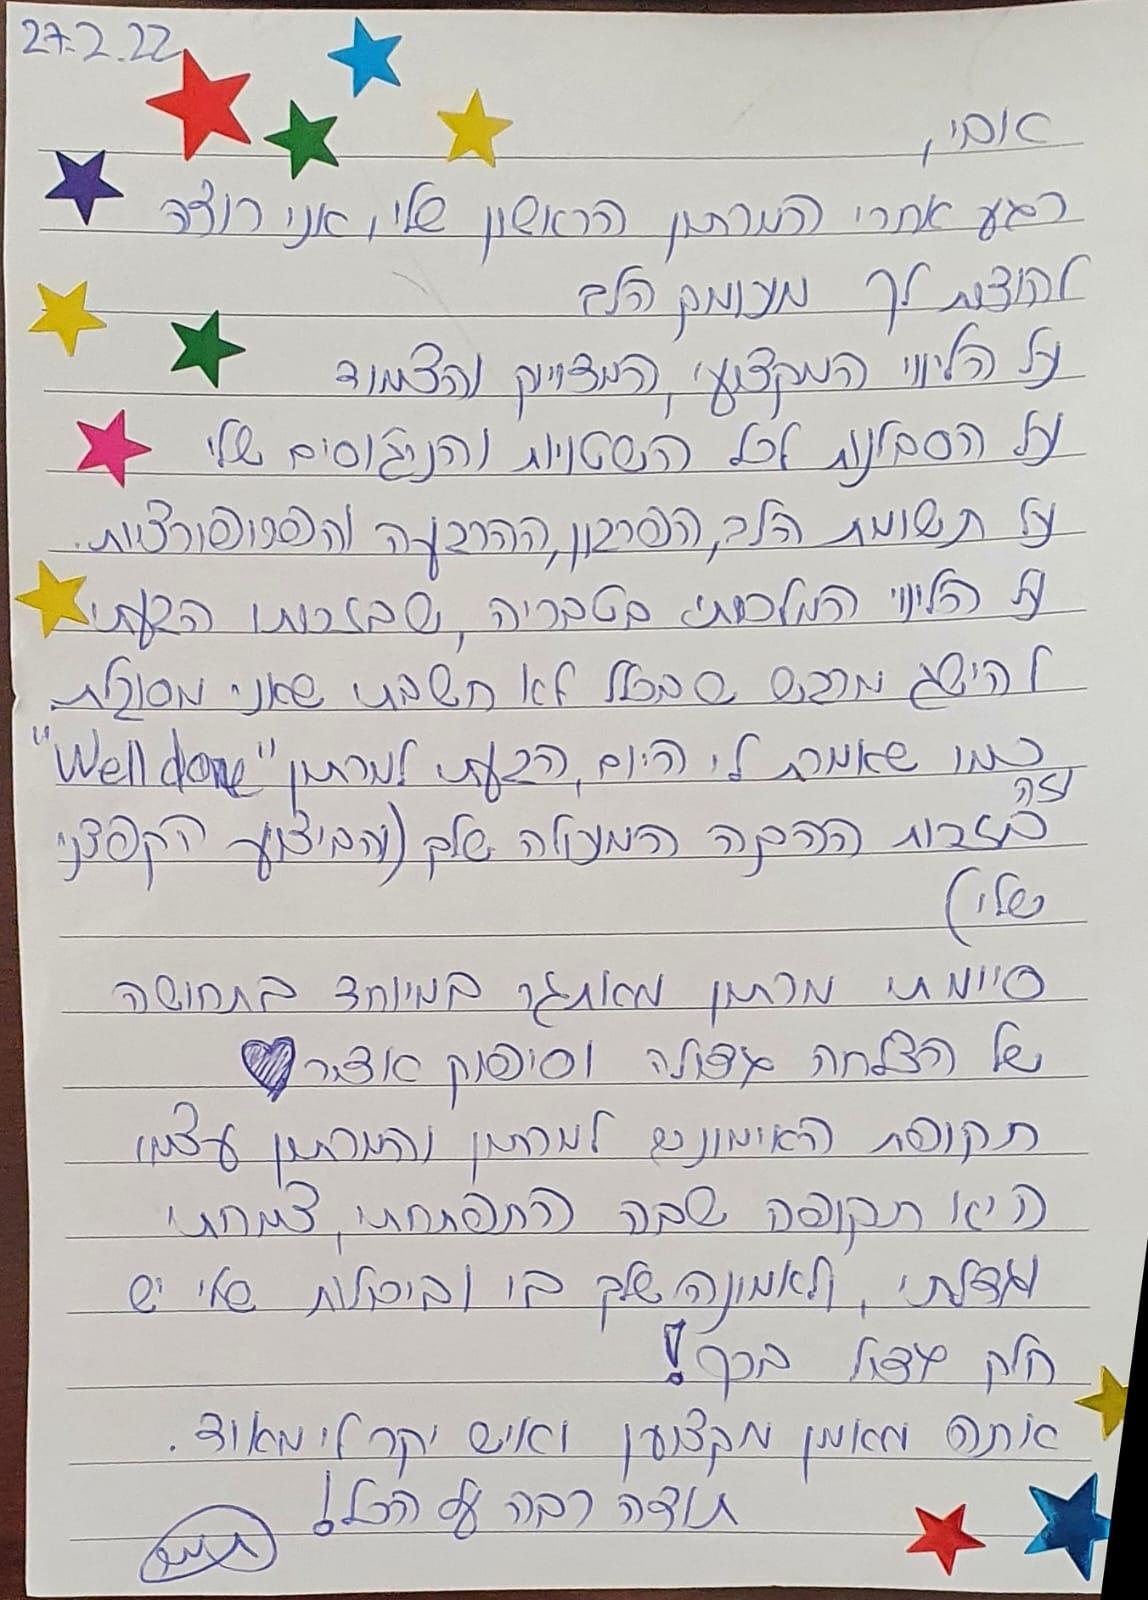 27.2.22
אומי,
רגע אחרי המרתון הראשון שלי, אני רוצה
להודות לך מעומק הלב
על הליווי המקצועי, המדוייק והצמוד
על הסבלנות לכל השטויות והניג'וסים שלי
על תשומת הלב, הפרגון, ההרגעה והפרופורציות.
על הליווי המלכותי בטבריה, שבזכותו הגעתי
להישג מרגש שבכלל לא חשבתי שאני מסוגלת
כמו שאמרת לי היום, הגעתי למרתון "Well done"
וזה
בזכות ההכנה המעולה שלך (והביצוע הקפדני
שלי)
סיימתי מרתון מאתגר במיוחד בתחושה
של הצלחה גדולה וסיפוק אדיר
תקופת האימונים למרתון והמרתון עצמו
היא תקופה שבה התפתחתי, צמחתי
וגדלתי, ולאמונה שלך בי וביכולות שלי יש
חלק גדול בכך!
אתה מאמן מקצוען ואיש יקר לי מאוד.
תודה רבה על הכל!